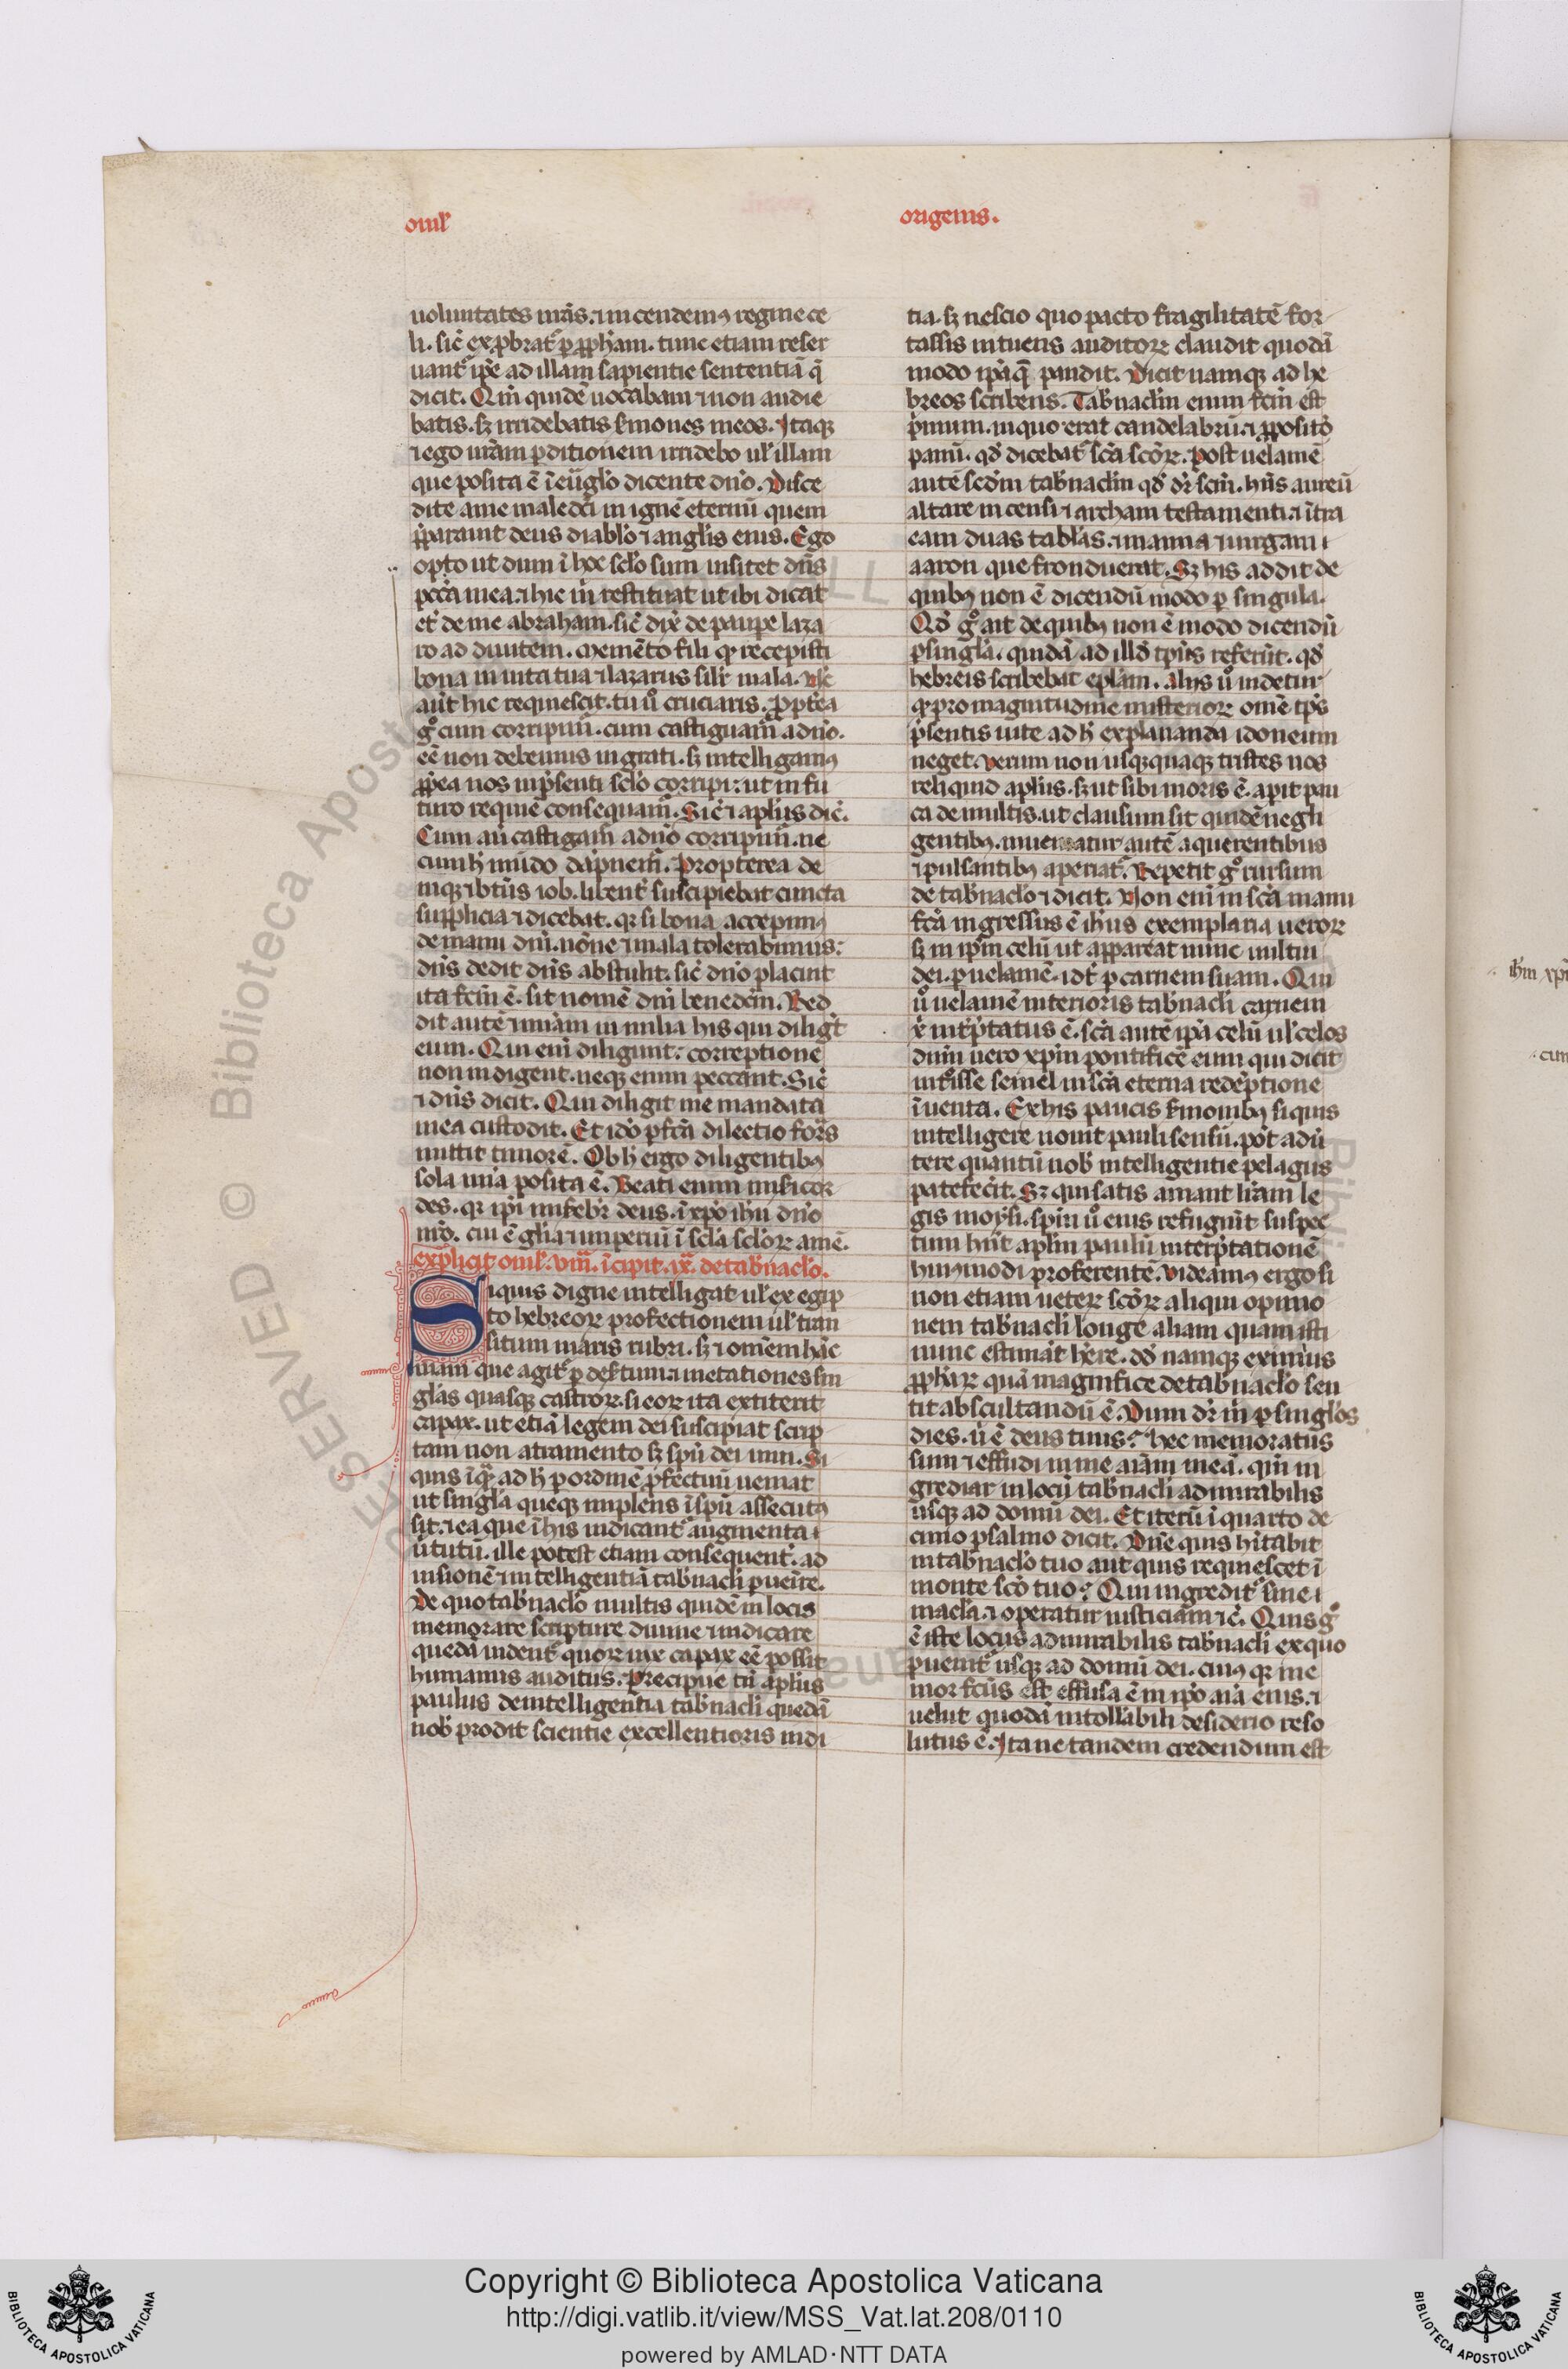 omił
origenis.
uoluntates nr̃as. ⁊ incendemꝰ regine ce
li. sic̃ exp̱brat᷑ ꝑ ꝓph̃am. tunc etiam reser
uant᷑ ip̃e ad illam sapientie sententiã q̃
dicit. Qm̃ quidẽ uocabam ⁊ non audie
batis. sꝫ irridebatis s̃mones meos. Itaqꝫ
⁊ ego ur̃am ꝑditionem irridebo uł illam
que posita ẽ ĩ eũglo dicente dño. Disce
dite a me maledc̃i in ignẽ eternũ quem
p̃parauit deus diablo ⁊ anglis eius. Ego
opto ut dum ĩ hoc sclo sum uisitet dñs
pcc̃a mea. ⁊ hic m̃ restituat ut ibi dicat
et̃ de me abraham. sic̃ dix̃ de paupe laza
ro ad diuitem. memẽto fili qꝛ recepisti
bona in uita tua ⁊ lazarus silr̃ mala. Nc̃
aũt hic requiescit. tu ũo cruciaris. ꝓpt̃ea
gͦ cum corripim̃. cum castigam̃ a dño.
eẽ non debemus ingrati. sꝫ intelligamꝰ
ꝓp̃ea nos in p̃senti sclo corripi: ut in fu
turo requiẽ consequam̃. Sic̃ ⁊ aplus dic̃.
Cum aũ castigam̃ a dño corripim̃. ne
cum h̃ mũdo dapnem̃. Propterea de
niqꝫ ⁊ bt̃us iob. libent᷑ suscipiebat cuncta
supplicia ⁊ dicebat. qꝛ si bona accepimꝰ
de manu dñi. nõne ⁊ mala tolerabimus:
dñs dedit dñs abstulit. sic̃ dño placuit
ita fc̃m ẽ. sit nomẽ dñi benedc̃m. Red
dit autẽ ⁊ miam in milia his qui diligt̃
eum. Qui eni diligunt: correptione
non indigent. neqꝫ enim peccant. Sic̃
⁊ dñs dicit. Qui diligit me mandata
mea custodit. Et ido ꝑfc̃a dilectio foras
mittit timorẽ. Ob h̃ ergo diligentibꝰ
sola mĩa posita ẽ. Beati enim misericor
des. qꝛ ip̃i misebr̃ deus. ĩ xp̃o ih̃u dño
nr̃o. cui ẽ glia ⁊ imperiũ ĩ scla sclorꝝ amẽ.
explicit omił. viii. ĩcipit .ix. de tab̃nacło.
Siquis digne intelligat uł ex egip
to hebreorꝝ profectionem uł tran
situm maris rubri. sꝫ ⁊ omẽm hãc
uiam que agit᷑ ꝑ des̃tum. ⁊ metationes sin
glas quasqꝫ castrorꝝ. si eorꝝ ita extiterit
capax. ut etiã legem dei suscipiat scrip
tam non atramento sꝫ spũ dei uiui. Si
quis ĩqͣ ad h̃ ꝑ ordinẽ ꝓfectuũ ueniat
ut singla queqꝫ implens ĩ spũ assecutꝰ
sit. ⁊ ea que ĩ his indicant᷑ augmenta
ũtutũ. ille potest etiam consequent᷑. ad
uisionẽ ⁊ intelligentiã tab̃nacli ꝑuenire.
De quo tab̃naclo multis quidẽ in locis
memorare scripture diuine ⁊ indicare
quedã uident᷑ quorꝝ uix capax eẽ possit
humanus auditus. Precipue tñ aplus
paulus de intelligentia tab̃nacli quedã
nob̃ prodit scientie excellentioris indi
tia. sꝫ nescio quo pacto fragilitatẽ for
tassis intuens auditorꝝ claudit quodã
modo ip̃a q̃ pandit. Dicit namqꝫ ad he
breos scribens. Tab̃naclm enim fc̃m est
p̃mum. in quo erat candelabrũ. ⁊ ꝓposito
panũ. qd̃ dicebat᷑ sc̃a sc̃orꝝ. Post uelame
autẽ sc̃dm tab̃naclm qd̃ dr̃ sc̃m. hñs aureũ
altare incensi ⁊ archam testamenti. ⁊ ĩtra
eam duas tablas. ⁊ manna ⁊ uirgam
aaron que fronduerat. Sꝫ his addit de
quibꝰ non ẽ dicendũ modo ꝑ singula.
Qd̃ gͦ ait de quibꝰ non ẽ modo dicendũ
ꝑ singla. quidã ad illd̃ tp̃us referũt. qd̃
hebreis scribebat epl̃am. Aliis ũo uidetur
qꝛ pro magnitudine misteriorꝝ omẽ tp̃s
p̃sentis uite ad h̃ explananda idoneum
neget. Verum non usqꝫquaqꝫ tristes nos
reliquid aplus. sꝫ ut sibi moris ẽ. apit pau
ca de multis. ut clausum sit quidẽ negli
gentibꝰ. inueniatur autẽ a querentibus
⁊ pulsantibꝰ aperiat᷑. Repetit gͦ rursum
de tab̃naclo ⁊ dicit. Non eni in sc̃a manu
fc̃a ingressus ẽ ih̃us exemplaria uerorꝝ
sꝫ in ip̃m celũ ut appareat nunc uultui
dei. ꝑ uelamẽ. id̃t ꝑ carnem suam. Qui
ũo uelamẽ interioris tab̃nacli carnem
x̃ int̃p̃tatus ẽ. sc̃a autẽ ip̃a celũ uł celos
dum uero xp̃m pontificẽ eum qui dicit
int͛isse semel in sc̃a eterna redẽptione
ĩuenta. Ex his paucis s̃monibꝰ siquis
intelligere nouit pauli sensũ. põt adũ
tere quantũ nob̃ intelligentie pelagus
patefecit. Sꝫ qui satis amant lr̃am le
gis moysi. spm̃ ũo eius refugiũt suspec
tum hñt aplm̃ paulũ interp̃tationẽ
huiꝰmodi proferentẽ. Videamꝰ ergo si
non etiam ueterꝝ sc̃orꝝ aliqui opinio
nem tab̃nacli longe aliam quam isti
nunc estimãt h̃ere. dd̃ namqꝫ eximius
ꝓph̃arꝝ quã magnifice de tab̃naclo sen
tit abscultandũ ẽ. Dum dr̃ m̃ ꝑ singlos
dies. ũ ẽ deus tuus? hec memoratus
sum ⁊ effudi in me aĩam meã. qm̃ in
grediar in locũ tab̃nacli admirabilis
usqꝫ ad domũ dei. Et iterũ ĩ quarto de
cimo psalmo dicit. Dñe quis h̃itabit
in tab̃naclo tuo aut quis requiescet ĩ
monte sc̃o tuo? Qui ingredit᷑ sine
macla. ⁊ operatur iusticiam ⁊c̃. Quis gͦ
ẽ iste locus admirabilis tab̃nacli ex quo
ꝑuenit᷑ usqꝫ ad domũ dei. cuiꝰ qꝛ me
mor fc̃us est effusa ẽ in ip̃o aĩa eius. ⁊
uelut quodã intollabili desiderio reso
lutus ẽ. Itane tandem credendum est
Copyright © Biblioteca Apostolica Vaticana
http://digi.vatlib.it/view/MSS_Vat.lat.208/0110
powered by AMLAD·NTT DATA
BIBLIOTECA APOSTOLICA VATICANA
BIBLIOTECA APOSTOLICA VATICANA